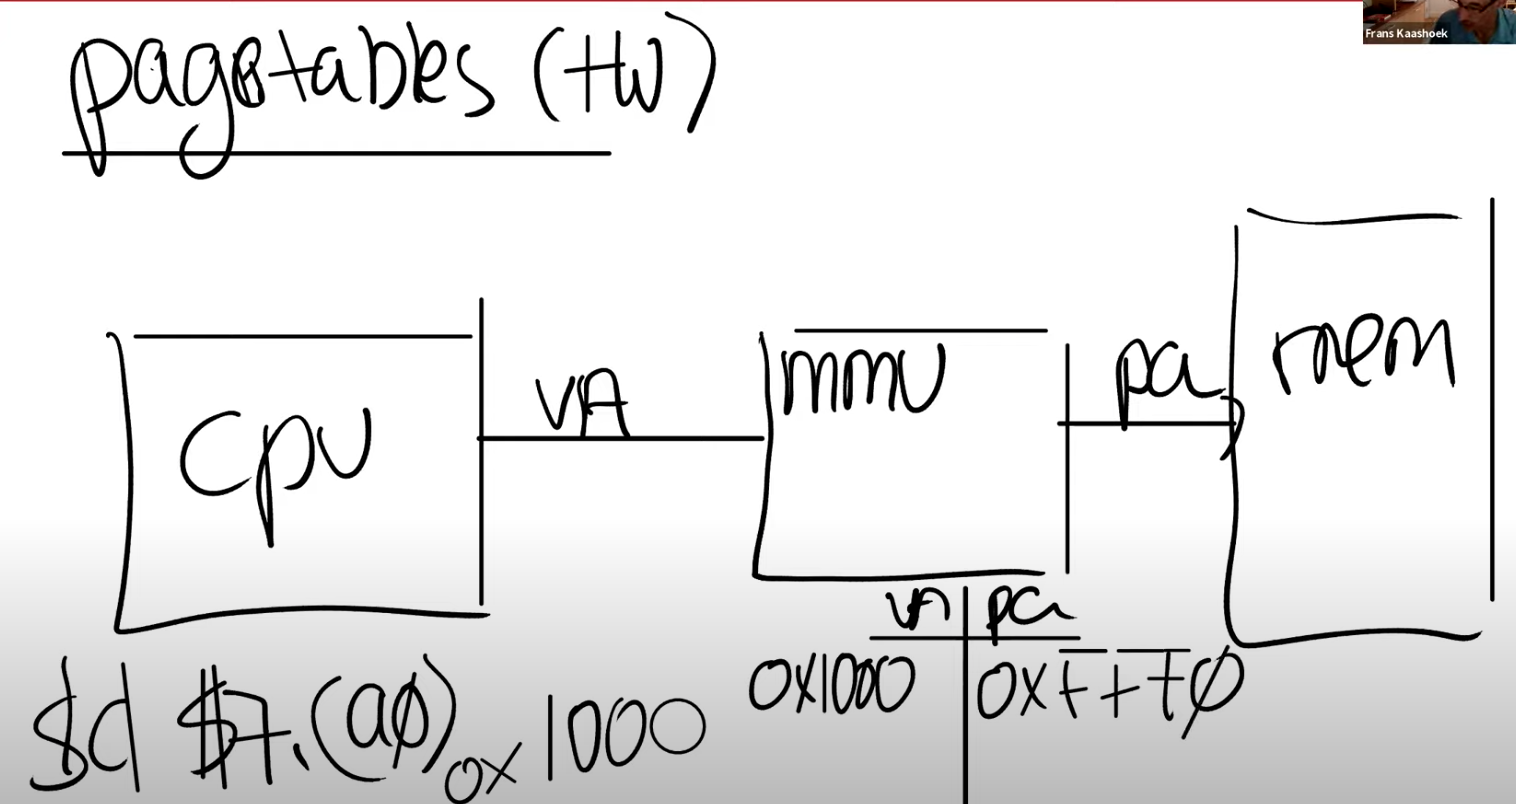 Frans Kaashoek
pagetables (HW)
CPU
VA
MMU
pa
mem
VA | pa
0x1000 | 0xFFF0
sd $7, (a0) 0x1000